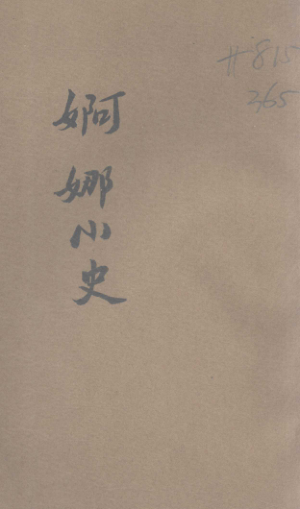 婀娜小史
#815
265